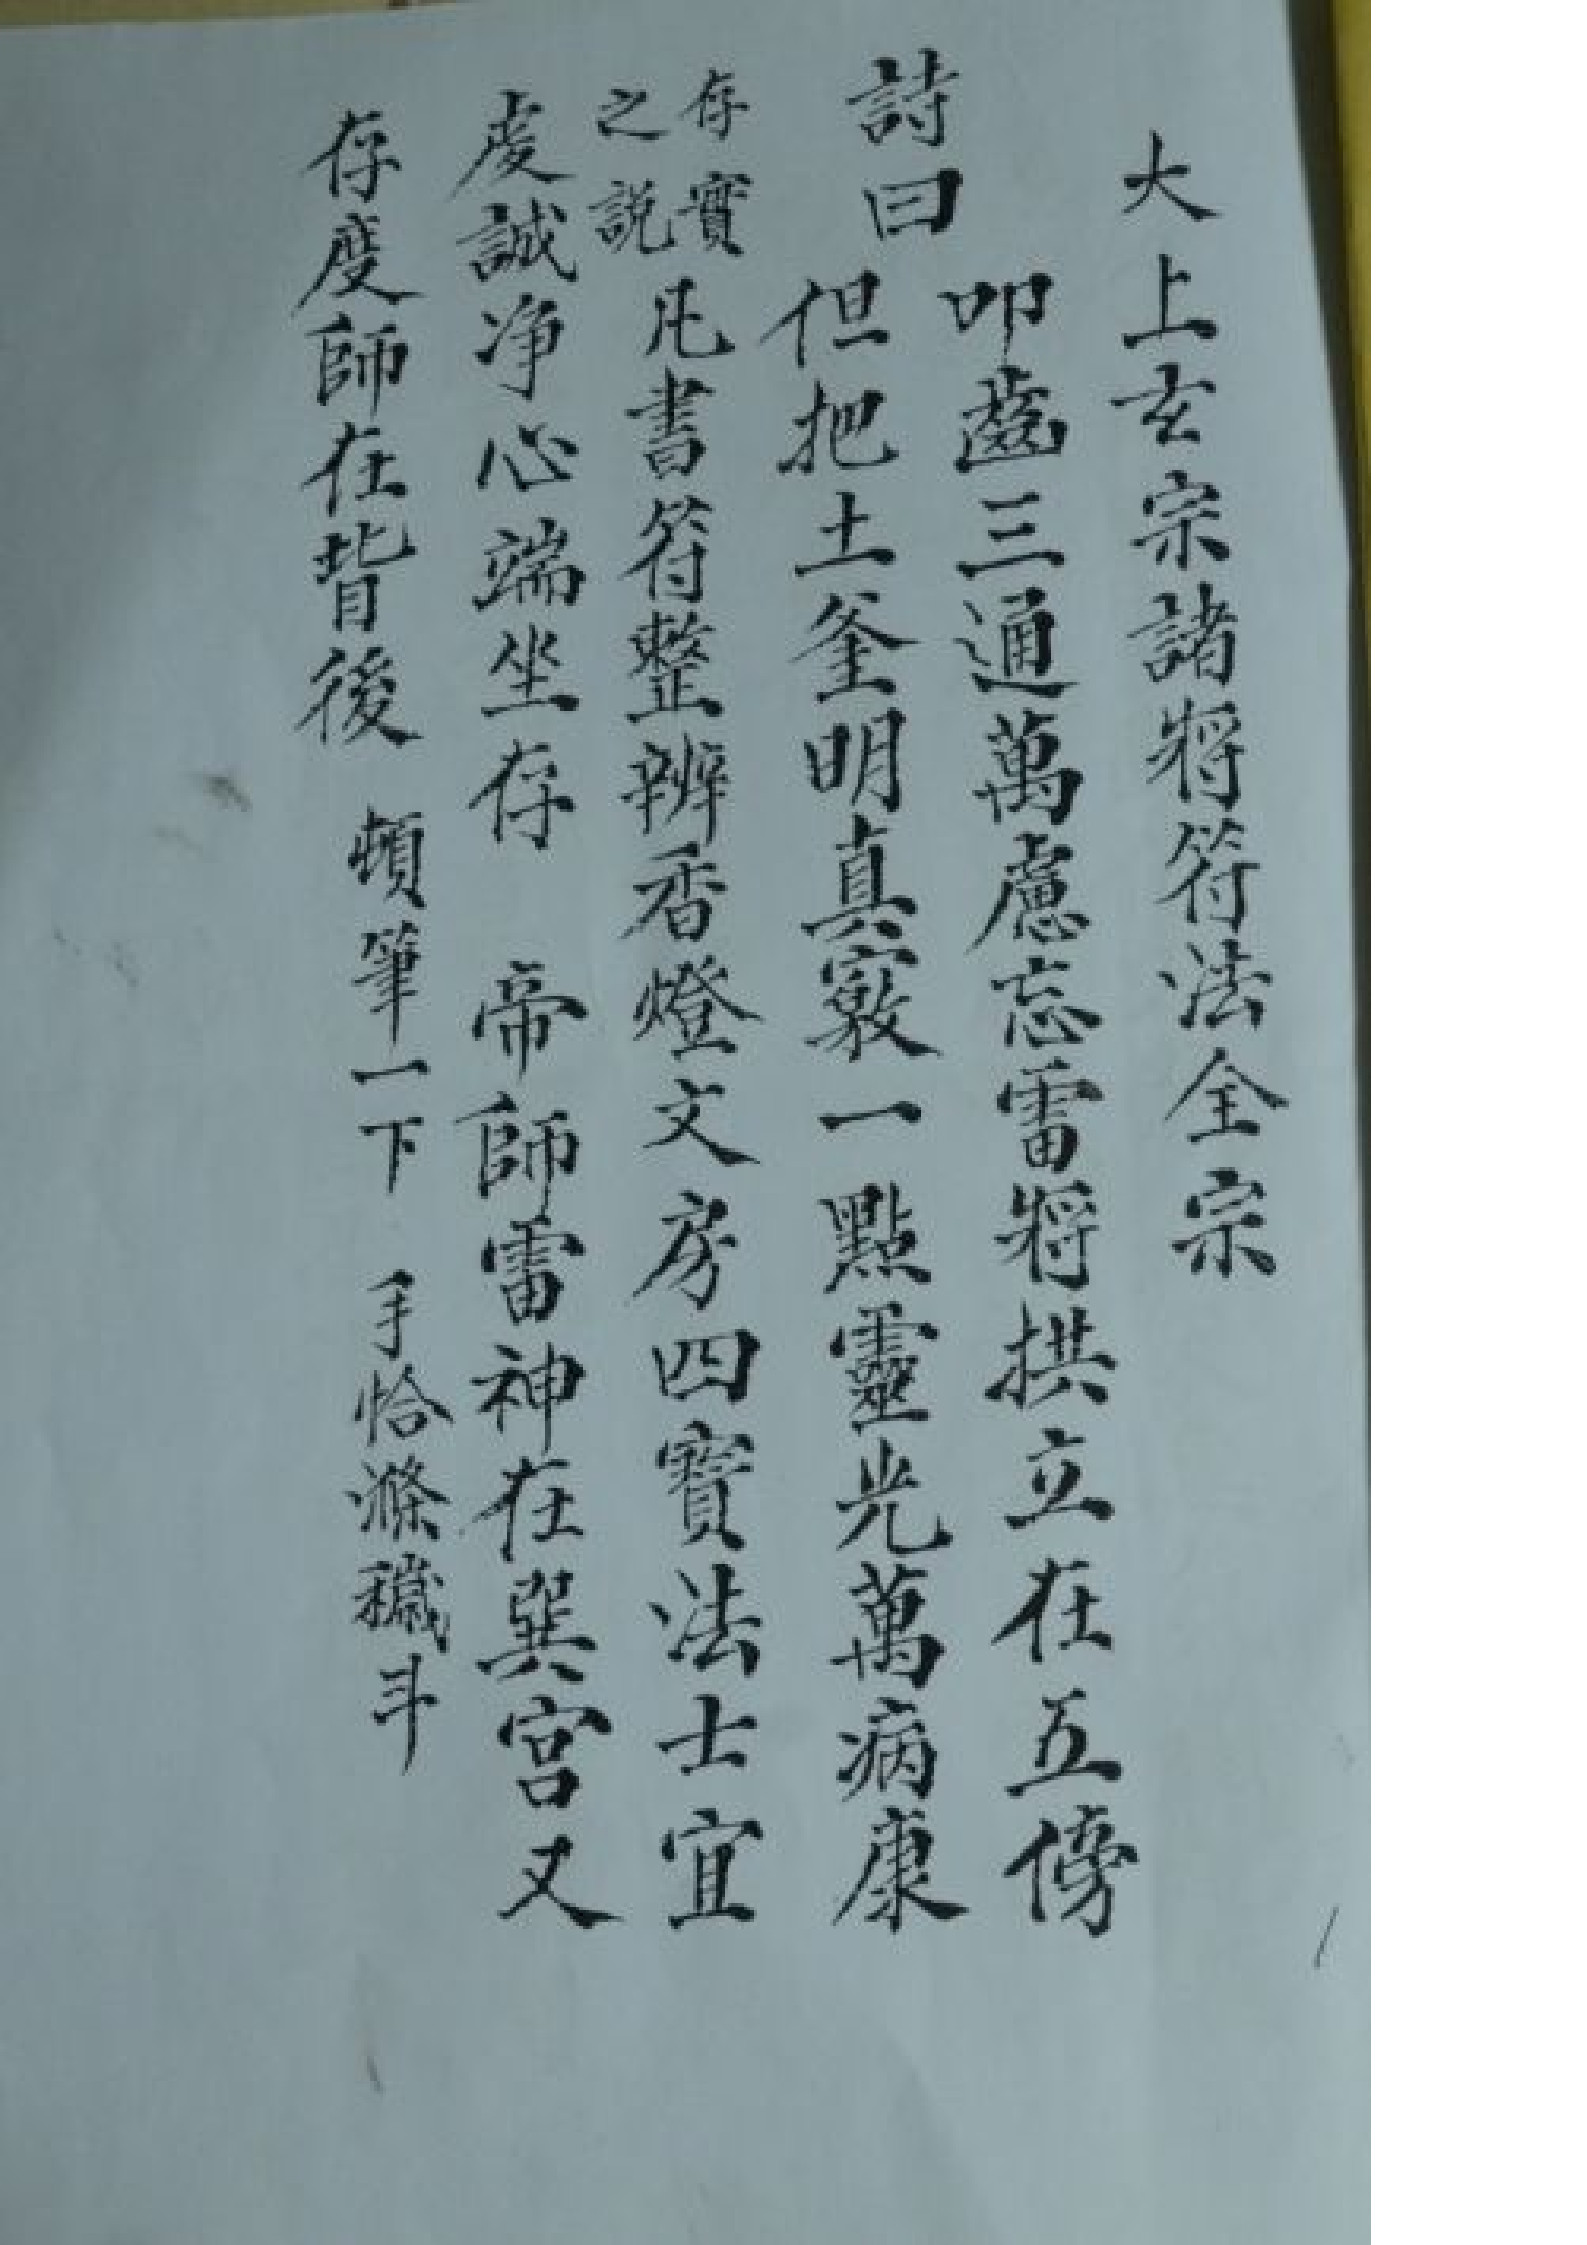 大上玄宗諸將符法全宗
詩曰
叩齒三通萬慮忘雷將拱立在五傍
但把土釜明真竅一點靈光萬病康
存實
之説
凡書符整辨香燈文房四寶法士宜
虔誠净心端坐存 帝師雷神在巽宮又
存度師在背後 頓筆一下 手恰滌穢斗